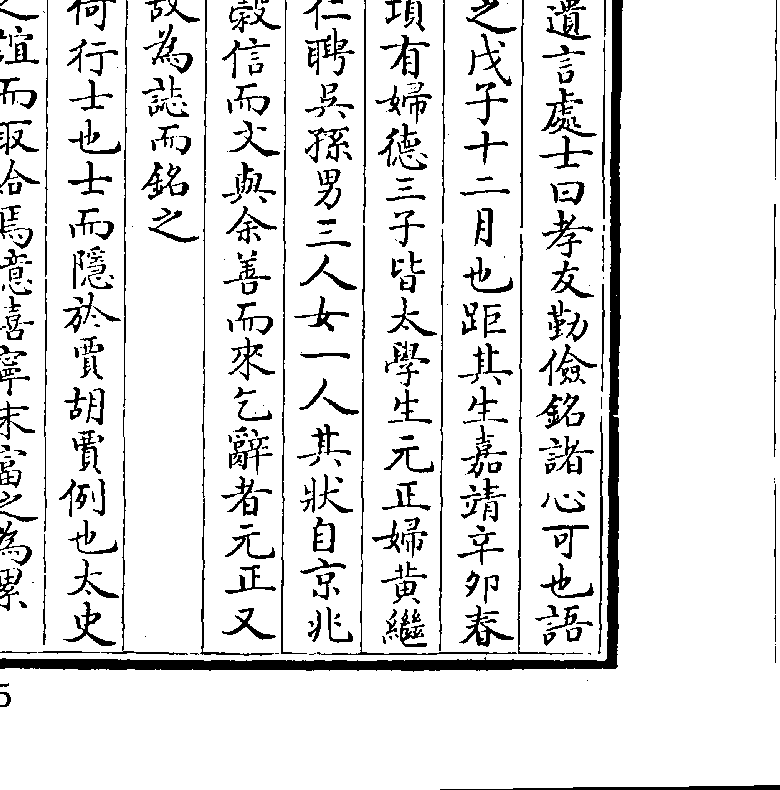 遺言處士曰孝友勤儉銘諸心可也語
之戊子十二月也距其生嘉靖辛卯春
項有婦德三子皆太學生元正婦黃繼
仁聘吳孫男三人女一人其狀自京兆
穀信而文與余善而來乞辭者元正又
故為誌而銘之
倚行士也士而隱於賈胡賈例也太史
之誼而取合焉意喜寧末富之為累
5